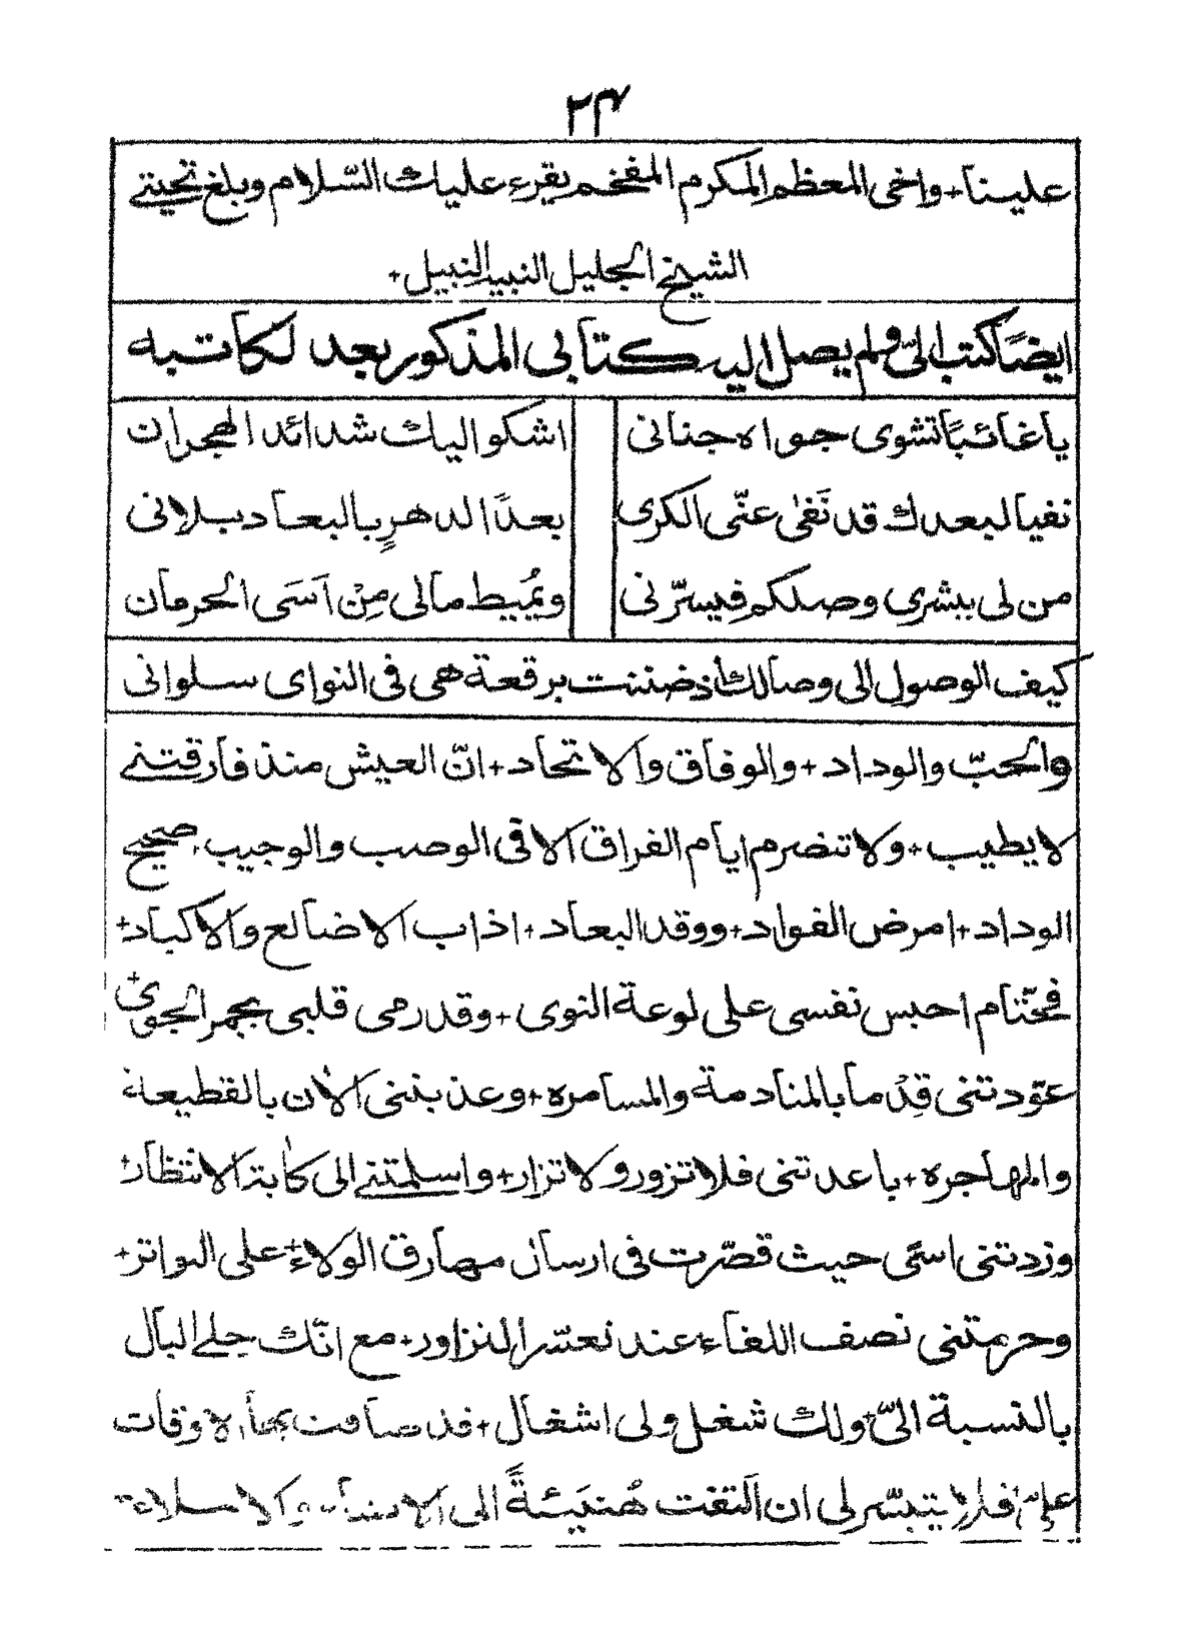 ٢٣
علينا + واخى المعظم المكرم المفخم يقرء عليك السّلام وبلغ تحيتے
الشيخ الجليل النبيه النبيل +
ايضًا كتب الىّ ولم يصل اليه كتابى المذكور بعد لكاتبه
ياغائبًا تشوى جواه جنانى اشكو اليك شدائد الهجران
نفيا لبعدك قد نَفىٰ عنّى الكرى بعدًا لدهرٍ بالبعاد بلانى
من لى ببشرى وصلكم فيسرّنى ويُميط مالى مِنْ اَسَى الحرمان
كيف الوصول الى وصالك اذ ضننت برقعة هى فى النواى سلوانى
والحبّ والوداد + والوفاق والاتحاد + انّ العيش منذ فارقتنے
لايطيب + ولا تنضرم ايام الفراق الا فى الوصب والوجيب + صحيح
الوداد + امرض الفواد + ووقد البعاد + اذاب الاضالع والاكباد +
فحتّام احبس نفسى على لوعة النوى + وقد رمى قلبى بجمر الجوىٰ +
عوّدتنى قِدْما بالمنادمة والمسامره + وعذبتنى الاٰن بالقطيعة
والمهاجره + باعدتنى فلا تزور ولا تزار + واسلمتنے الى كاٰبة الانتظار +
وزدتنى اسًى حيث قصّرت فى ارسال مهارق الولاء + على التواتر +
وحرمتنى نصف اللقاء عند تعسّر التزاور + مع انّك خلے البال
بالنسبة الىّ + ولك شغل ولى اشغال + قد ضاقت بها الاوقات
علىّ + فلا يتيسّر لى ان اَلتفت هُنيَئةً الى الانشاء والاملاء +